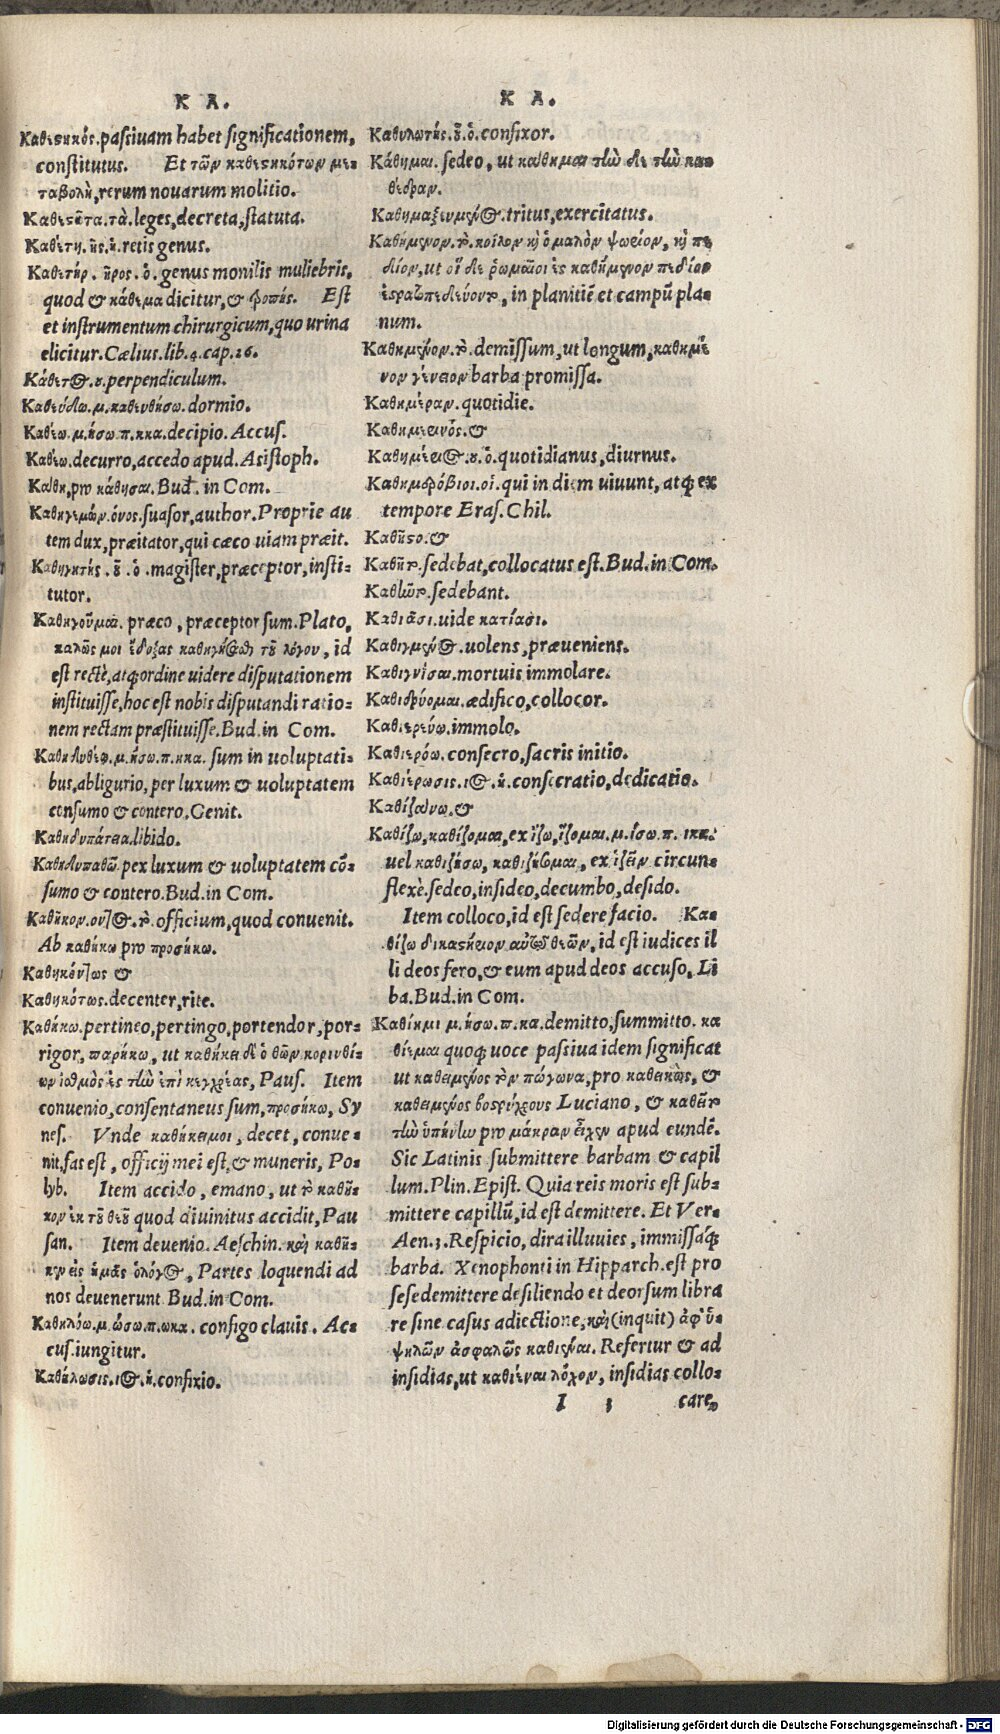 Κ Α.
Καθεστηκός. passiuam habet significationem,
constitutus. Et τῶν καθεστηκότων με-
ταβολὴ, rerum nouarum molitio.
Καθεστῶτα. τὰ. leges, decreta, statuta.
Καθέτη. ης. ἡ. retis genus.
Καθετήρ. ῆρος. ὁ. genus monilis muliebris,
quod & κάθεμα dicitur, & Est
et instrumentum chirurgicum, quo urina
elicitur. Cælius. lib. 4. cap. 26.
Κάθετος. ου. perpendiculum.
Καθεύδω. μ. καθευδήσω. dormio.
Καθέω. μ. ήσω. π. ηκα. decipio. Accus.
Καθέω. decurro, accedo apud. Asistoph.
Κάθη, pro κάθησαι. Bud. in Com.
Καθηγεμών. όνος. suasor, author. Proprie au
tem dux, præitator, qui cæco uiam præit.
Καθηγητής. οῦ. ὁ. magister, præceptor, insti-
tutor.
Καθηγοῦμαι. præco, præceptor sum. Plato,
καλῶς μοι ἔδοξας καθηγήσαϑαι τοῦ λόγου, id
est rectè, atq; ordine uidere disputationem
instituisse, hoc est nobis disputandi ratio-
nem rectam præstituisse. Bud. in Com.
μ. ήσω. π. ηκα. sum in uoluptati-
bus, abligurio, per luxum & uoluptatem
consumo & contero. Genit.
Καθηδυπάτεια. libido.
Καθηδυπαθῶ. per luxum & uoluptatem cō-
sumo & contero. Bud. in Com.
Καθῆκον. οντος. τὸ. officium, quod conuenit.
Ab καθήκω pro προσήκω.
Καθηκόντως &
Καθηκότως. decenter, rite.
Καθήκω. pertineo, pertingo, portendor, por-
rigor, παρήκω, ut καθήκει δὲ ὁ τῶν κορινθί-
ων ἰσθμὸς ἐς τὼ ἐπὶ κεγχρέας, Paus. Item
conuenio, consentaneus sum, προσήκω, Sy
nes. Vnde καθήκει μοι, decet, conue-
nit, fas est, officij mei est, & muneris, Po-
lyb. Item accido, emano, ut τὸ καθῆ-
κον ἐκ τοῦ θεοῦ quod diuinitus accidit, Pau
san. Item deuenio. Aeschin. καὶ καθῆ-
κεν εἰς ἡμᾶς ὁ λόγος, Partes loquendi ad
nos deuenerunt Bud. in Com.
Καθηλόω. μ. ώσω. π. ωκα. configo clauis. Ac-
cus. iungitur.
Καθήλωσις. ιος. ἡ. confixio.
Κ Α.
Καθηλωτής. οῦ. ὁ. confixor.
Κάθημαι. sedeo, ut κάθημαι τὼ δε τὼ κα-
θέδραν.
Καθημαξευμένος. tritus, exercitatus.
Καθήμενον. τὸ. κοῖλον κὴ ὁμαλὸν χωρίον, κὴ πε
δίον, ut οἱ δὲ ῥωμαῖοι ἐς καθήμενον πεδίον
ἐστρατοπεδεύοντο, in planitiē et campū pla-
num.
Καθημένον. τὸ. demissum, ut longum, καθημέ
νον γένειον barba promissa.
Καθημέραν. quotidie.
Καθημερινός. &
Καθημέριος. ου. ὁ. quotidianus, diurnus.
Καθημερόβιοι. οἱ. qui in diem uiuunt, atq; ex
tempore Eras. Chil.
Καθῆστο. &
Καθῆτο. sedebat, collocatus est. Bud. in Com.
Καθῶτο. sedebant.
Καθιᾶσι. uide κατίασι.
Καθιγμένος. uolens, præueniens.
Καθιγνίσαι. mortuis immolare.
Καθιδρύομαι. ædifico, collocor.
Καθιερεύω. immolo.
Καθιερόω. consecro, sacris initio.
Καθιέρωσις. ιος. ἡ. consecratio, dedicatio.
Καθιζάνω. &
Καθίζω, καθίζομαι, ex ἵζω, ἵζομαι. μ. ίσω. π. ικα.
uel καθιζήσω, καθιζήσομαι, ex ἱζεῖν circun-
flexè. sedeo, insideo, decumbo, desido.
Item colloco, id est sedere facio. Κα-
θίζω δικαστήριον αὐτῷ θεῶν, id est iudices il
li deos fero, & eum apud deos accuso, Li
ba. Bud. in Com.
Καθίημι μ. ήσω. π. κα. demitto, summitto. κα
θίεμαι quoq; uoce passiua idem significat
ut καθειμένος τὸν πώγωνα, pro καθεικὼς, &
καθειμένος βοστρύχους Luciano, & καθεῖτο
τὼ ὑπήνω pro μάκραν εἶχεν apud eundē.
Sic Latinis submittere barbam & capil
lum. Plin. Epist. Quia reis moris est sub-
mittere capillū, id est demittere. Et Ver-
Aen. 3. Respicio, dira illuuies, immissaq́;
barba. Xenophonti in Hipparch. est pro
sese demittere desiliendo et deorsum libra
re sine casus adiectione, καὶ (inquit) ἀφ' ὑ-
ψηλῶν ἀσφαλῶς καθιέναι. Refertur & ad
insidias, ut καθιέναι λόχον, insidias collo-
I 3 care,
Digitalisierung gefördert durch die Deutsche Forschungsgemeinschaft - DFG